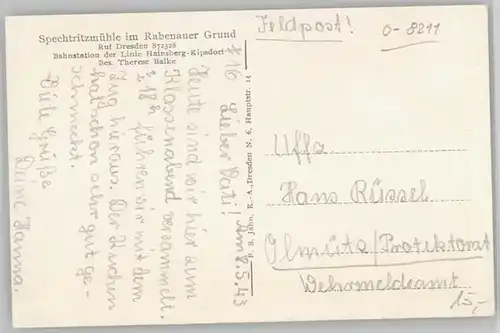 Spechtritzmühle im Rabenauer Grund
Ruf Dresden 872328
Bahnstation der Linie Hainsberg-Kipsdorf
Bes. Therese Balke
#16
Lieber Vati! Am 2.5.43
Heute sind wir hier zum
Klassenabend versammelt.
½ 18h fuhren wir mit dem
Zug hieraus. Der Kuchen
hat schon sehr gut ge-
schmeckt.
Viele Grüße
Deine Hanna.
F. S. Jahn, K.-A., Dresden N. 6, Hauptstr. 14
Feldpost!
0-8211
Uffa
Hans Rüssel
Olmütz/Protektorat
Wehrmeldeamt
15,-